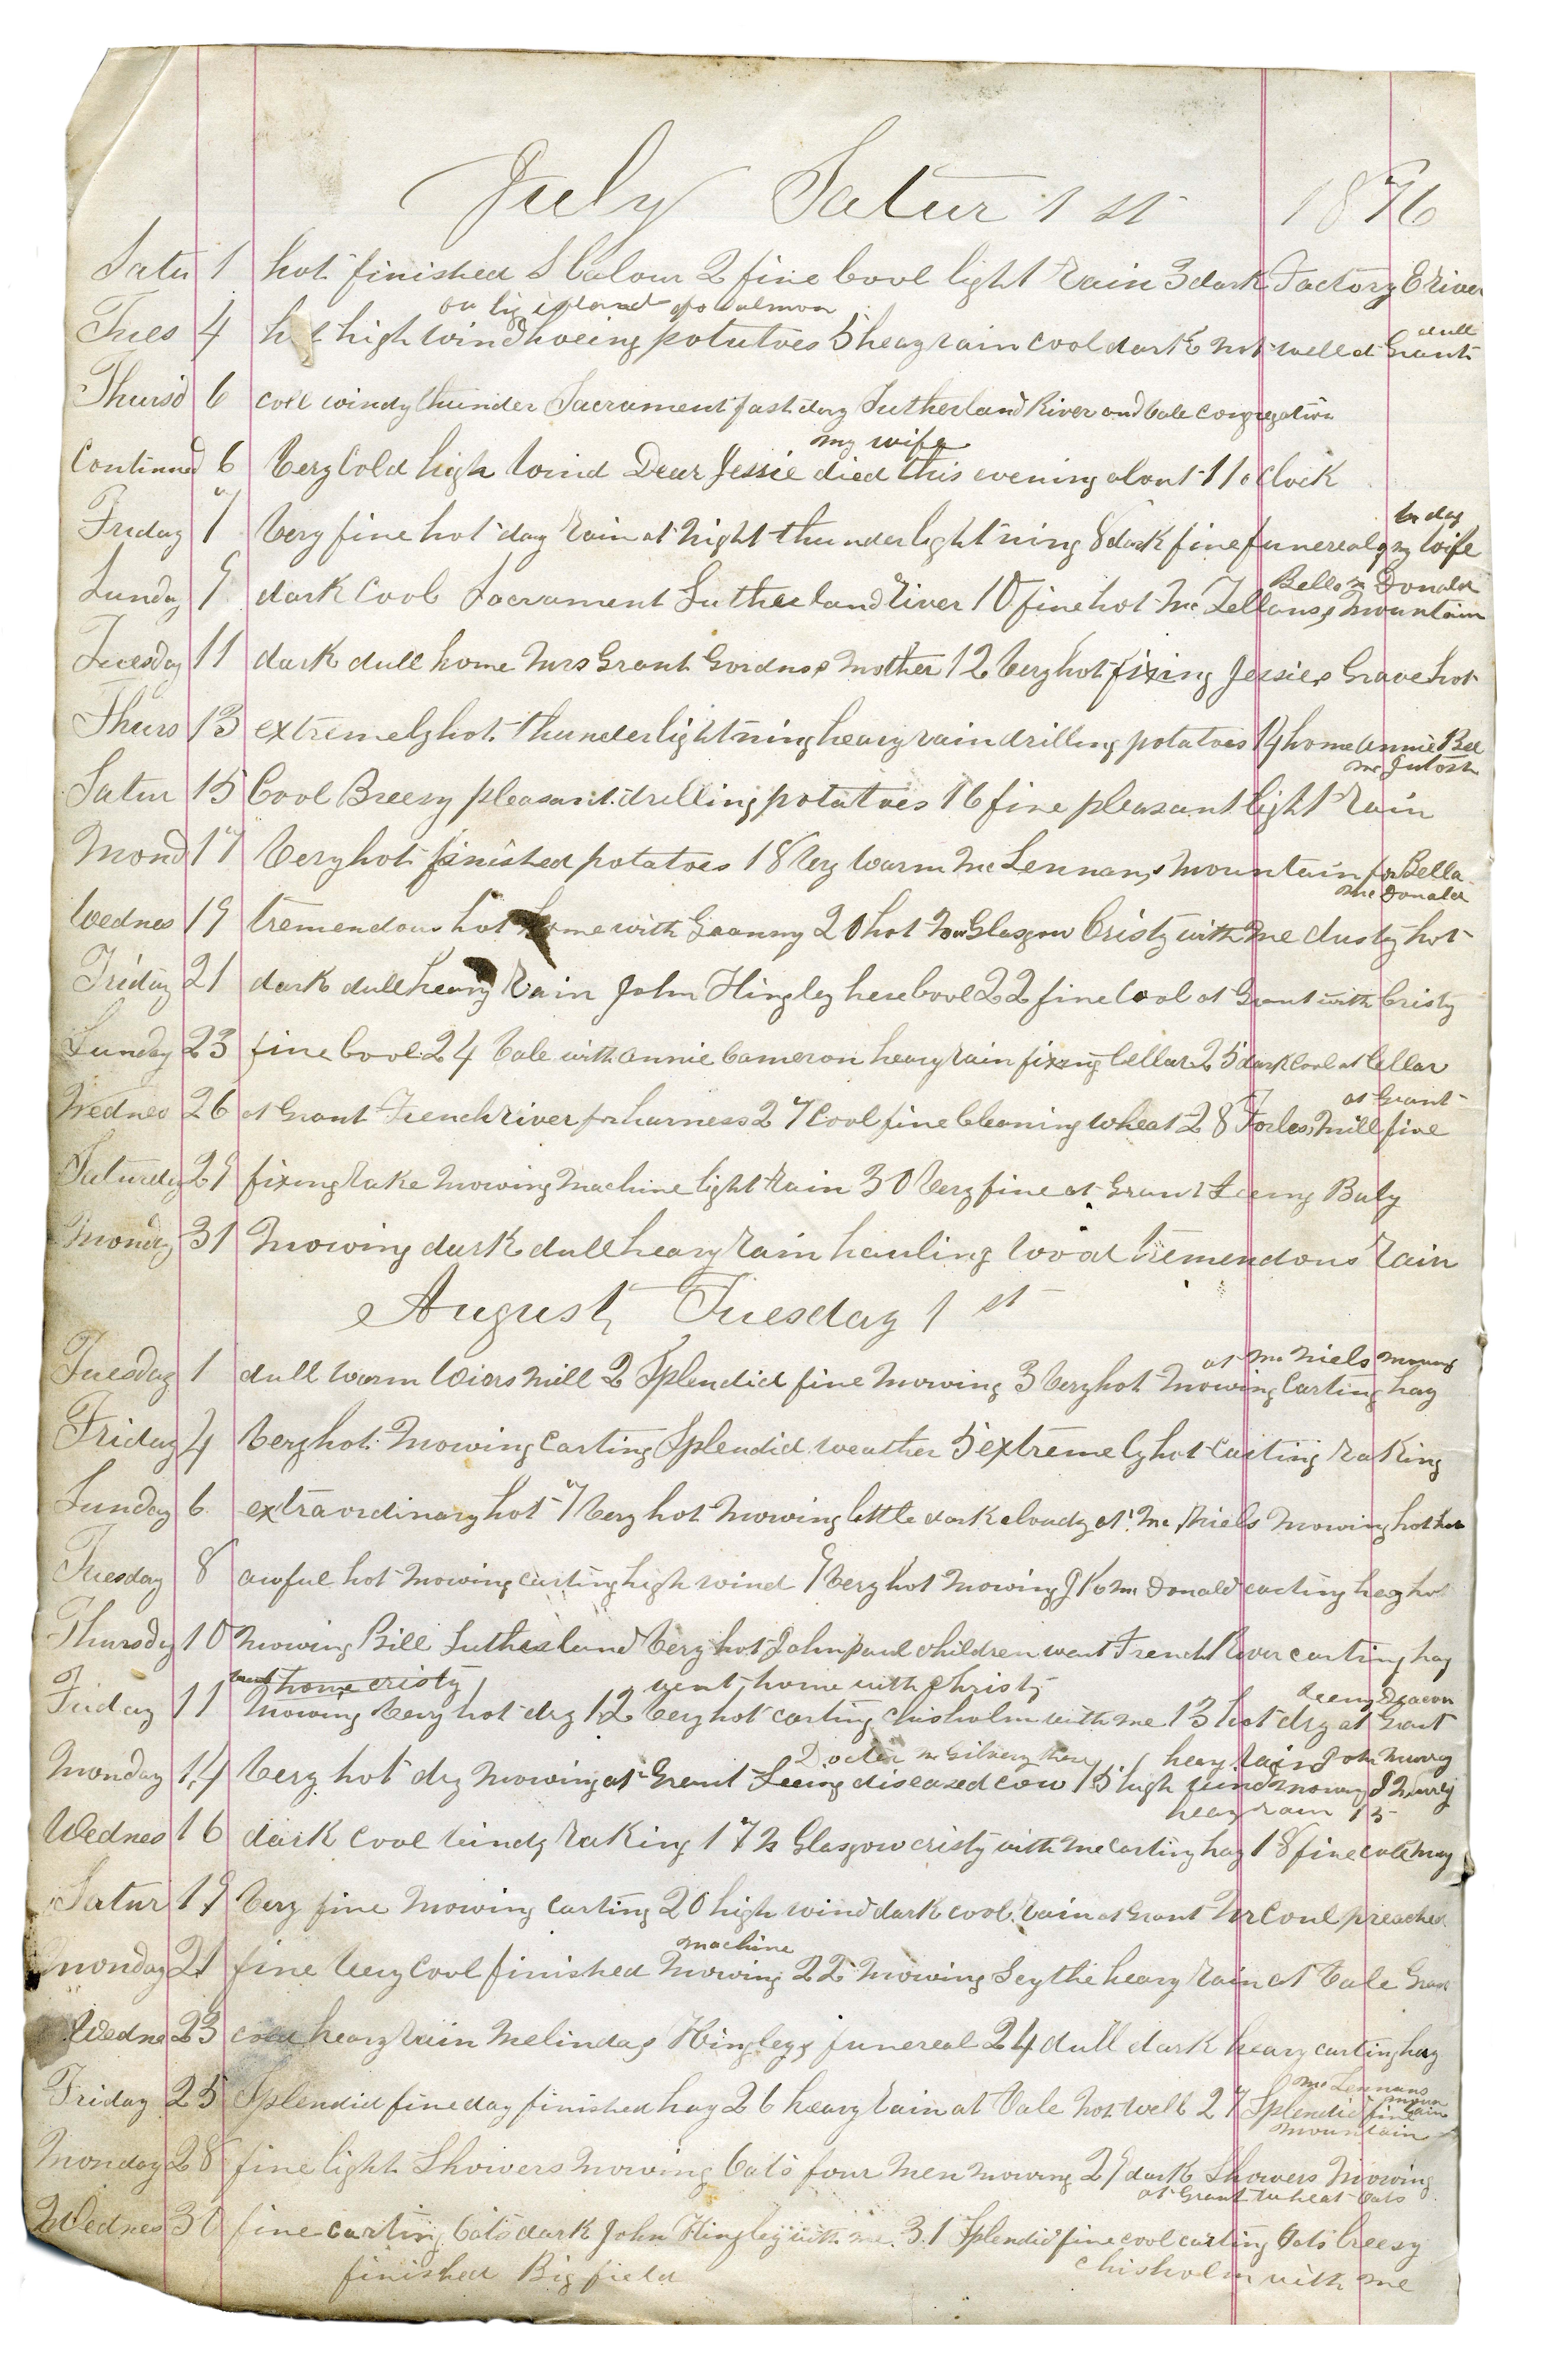 July Satur 1 st 1876
Satu 1 hot finished 2 fine Cool light Rain 3 dark Factory E River
on big island of Salmon
Tues 4 high wind hoeing potatoes 5 heavy rain cool dark not well at Grant
dull
Thursd 6 cold windy thunder Sacrament fast day Sutherland River and Vale congregation
my wife
Continued 6 Very Cold high Wind Dear Jessie died this evening about 11 o Clock
to day
Friday 7 Very fine hot day Rain at Night thunder lightning 8 dark fine funereal of my Wife
Bella Mc Donald
Sunday 9 dark Cool Sacrament Sutherland River 10 fine hot Mc Lellans Mountain
Tuesday 11 dark dull home Mrs Grant Gordns Mother 12 Very hot fixing Jessies Grave hot
Thurs 13 extremely hot thunder lightning heavy rain drilling potatoes 14 home Annie Bell
Mc Intosh
Satur 15 Cool Breesy pleasant drilling potatoes 16 fine pleasant light Rain
Mond 17 Very hot finished potatoes 18 Very Warm Mc Lennans Mountain for Bella
Mc Donald
Wednes 19 tremendous hot home with Granny 20 hot New Glasgow Cristy with Me dusty hot
Friday 21 dark dull heavy Rain John Hingley here Cool 22 fine Cool at Grant with Cristy
Sunday 23 fine Cool 24 Vale with Annie Cameron heavy rain fixing Cellar 25 dark Cool at Cellar
at Grant
Wednes 26 at Grant French river for harness 27 Cool fine Cleaning wheat 28 Forbes Mill fine
Saturday 29 fixing rake Mowing Machine light Rain 30 Very fine at Grant Seeing Baby
Monday 31 Mowing dark dull heavy Rain hauling Wood tremendous Rain
August Tuesday 1 st
at Mc Niels Mowing
Tuesday 1 dull Warm Weirs Mill 2 Splendid fine Mowing 3 Very hot Mowing Carting hay
Friday 4 Very hot Mowing Carting Splendid weather 5 extremely hot Carting raking
Sunday 6 extraordinary hot 7 Very hot Mowing little dark cloudy at Mc Niels Mowing hot hot
Tuesday 8 awful hot Mowing carting high wind 9 Very hot Mowing Mc Donald carting hay hot
Thursday 10 Mowing Bill Sutherland Very hot John paul children went French River carting hay
went home cristy went home with Christy seeing Deacon
Friday 11 Mowing Very hot dry 12 Very hot carting Chisholm with me 13 hot dry at Grant
Docter Mc Gilvery here heavy rain John Murry
Monday 14 Very hot dry Mowing at Grant Seeing diseased cow 15 high wind mowing J Murry
heavy rain 15
Wednes 16 dark cool Windy Raking 17 N Glasgow cristy with me carting hay 18 fine
Satur 19 Very fine Mowing Carting 20 high wind dark cool rain at Grant Mr Coul preacher
machine
Monday 21 fine Very Cool finished Mowing 22 Mowing Scythe heavy rain at Vale Grant
Wedne 23 cold heavy rain Melindas Hingleys funereal 24 dull dark heavy carting hay
Mc Lennans
Friday 25 Splendid fine day finished hay 26 heavy rain at Vale Not well 27 Splendid fine
mountain
mountain
Monday 28 fine light Showers Mowing Oats four Men Mowing 29 dark Showers Mowing
at Grant wheat Oats
Wednes 30 fine carting Oats dark John Hingley with me 31 Splendid fine cool carting Oats breesy
finished Big field chisholm with me